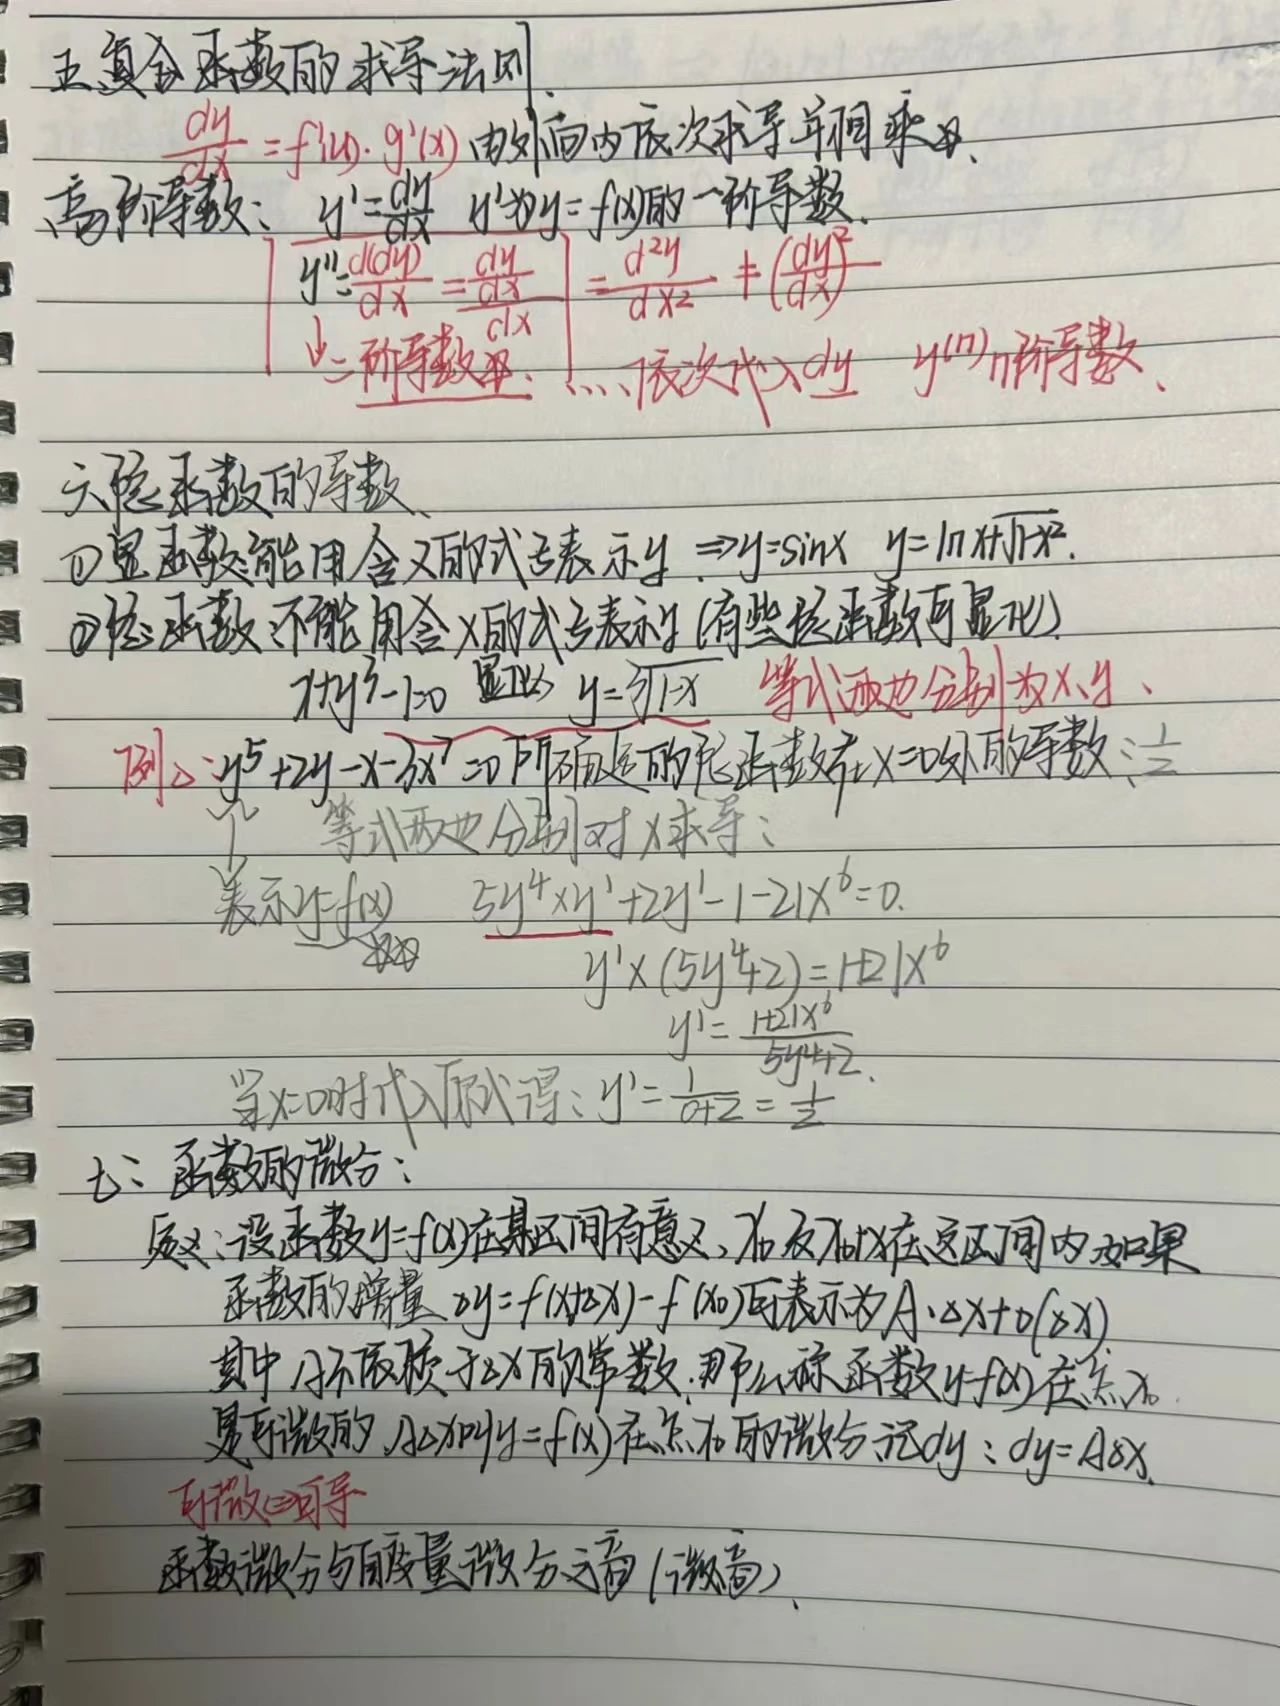 五 复合函数的求导法则.
dy/dx = f'(u)·g'(x) 由外向内依次求导并相乘.
高阶导数: y'=dy/dx y'为y=f(x)的一阶导数.
y''=d(dy)/dx = (dy/dx)/dx = d²y/dx² ≠ (dy/dx)²
↓二阶导数. ....依次代入dy y⁽ⁿ⁾n阶导数.
六 隐函数的导数.
①显函数:能用含x的式子表示y ⇒y=sinx y=lnx+√1-x².
②隐函数:不能用含x的式子表示y(有些隐函数可显化)
x+y³-1=0 显化 y=³√1-x 等式两边分别为x、y.
例: y⁵+2y-x-3x⁷=0所确定的隐函数在x=0处的导数:1/2
等式两边分别对x求导:
表示y=f(x) 5y⁴×y'+2y'-1-21x⁶=0.
y'×(5y⁴+2)=1+21x⁶
y'=1+21x⁶/5y⁴+2.
当x=0时代入原式得: y'=1/0+2=1/2
七: 函数的微分:
定义:设函数y=f(x)在某区间有意义,x₀及x₀+x在这区间内如果
函数的增量 △y=f(x+△x)-f(x₀)可表示为A·△x+o(△x).
其中A不依赖于△x的常数.那么称函数y=f(x)在点x₀
是可微的 A△x叫y=f(x)在点x₀的微分 记dy: dy=A△x.
可微⇔可导
函数微分与自变量微分之商(微商).